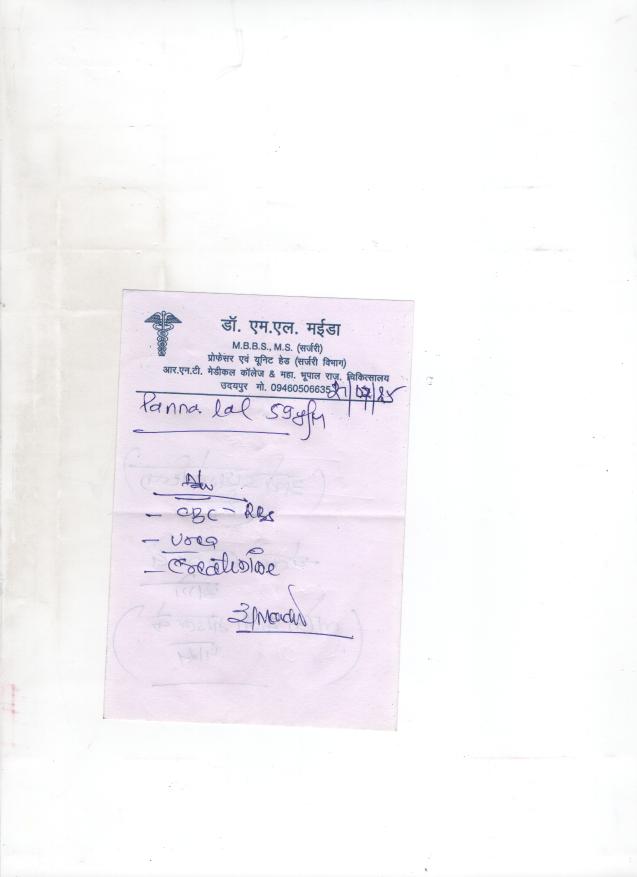 डॉ. एम.एल. मईडा
M.B.B.S., M.S. (सर्जरी)
प्रोफेसर एवं यूनिट हेड (सर्जरी विभाग)
आर.एन.टी. मेडीकल कॉलेज & महा. भूपाल राज. चिकित्सालय
उदयपुर मो. 09460506635
Panna lal 59y/M
- CBC - RBS
- Urea
- Creatinine